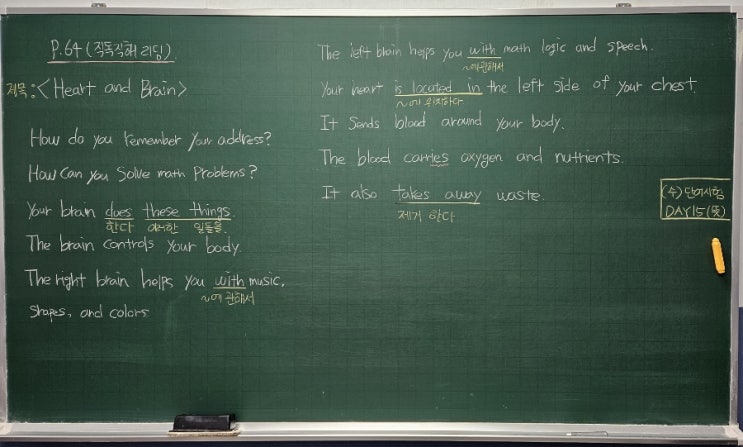 P.64 (직독직해 리딩)
제목: <Heart and Brain>
How do you remember your address?
How can you solve math problems?
Your brain does these things.
한다 이러한 일들을.
The brain controls your body.
The right brain helps you with music,
~에 관해서
shapes, and colors.
The left brain helps you with math logic and speech.
~에 관해서
Your heart is located in the left side of your chest.
~에 위치하다
It sends blood around your body.
The blood carries oxygen and nutrients.
It also takes away waste.
제거 한다
(수) 단어시험
DAY15(뜻)